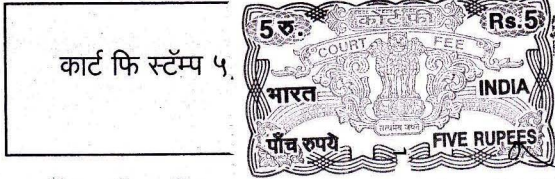 कार्ट फि स्टॅम्प ५.
5 रु. कोर्ट फी Rs.5
COURT FEE
भारत INDIA
सत्यमेव जयते
पाँच रुपये FIVE RUPEES